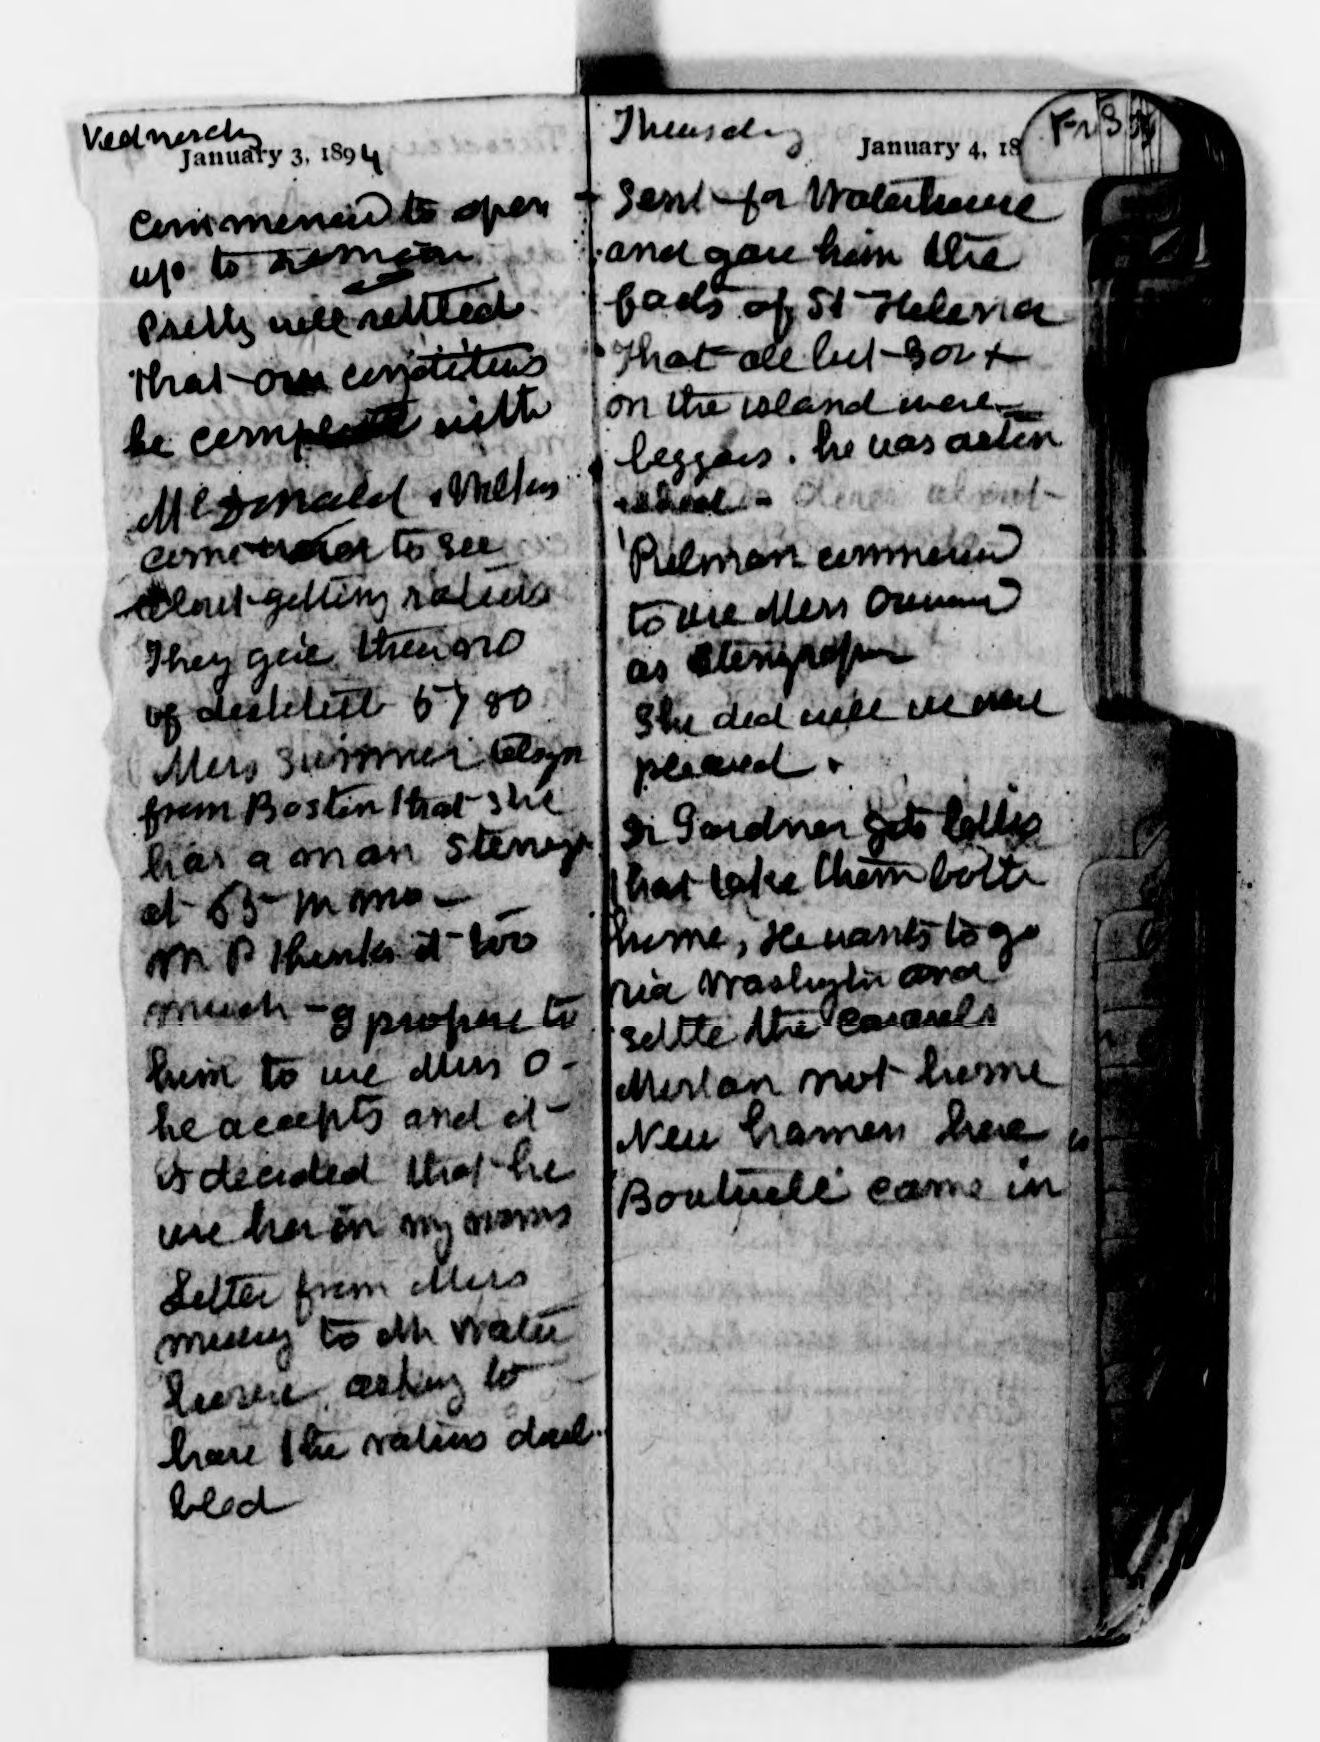 Wednesday
January 3, 1894
Commenced to open
up to
Pretty well settled
that our
be with
McDonald & Wilkins
come to see
about getting rations
They give the no
of destitute 5780
Miss Summer telegr
from Boston that she
has a man Stenogr
at 65 m mo —
Mr P thinks it too
much - I propose to
him to use Miss O -
he accepts and it
is decided that he
use her in my rooms
Letter from Miss
to Mr Water
house asking to
have the rations doub
bled
Thursday
January 4, 18
Sent for Waterhouse
and gave him the
facts of St Helena
That all but 30
on the island were
beggars. he was
Pulman commenced
to use Miss
as Stenographer
She did well we were
pleased.
Dr Gardner gets letters
that take them both
home, He wants to go
via Washgtn and
settle the
Morlan not home
New here
Boutwell came in